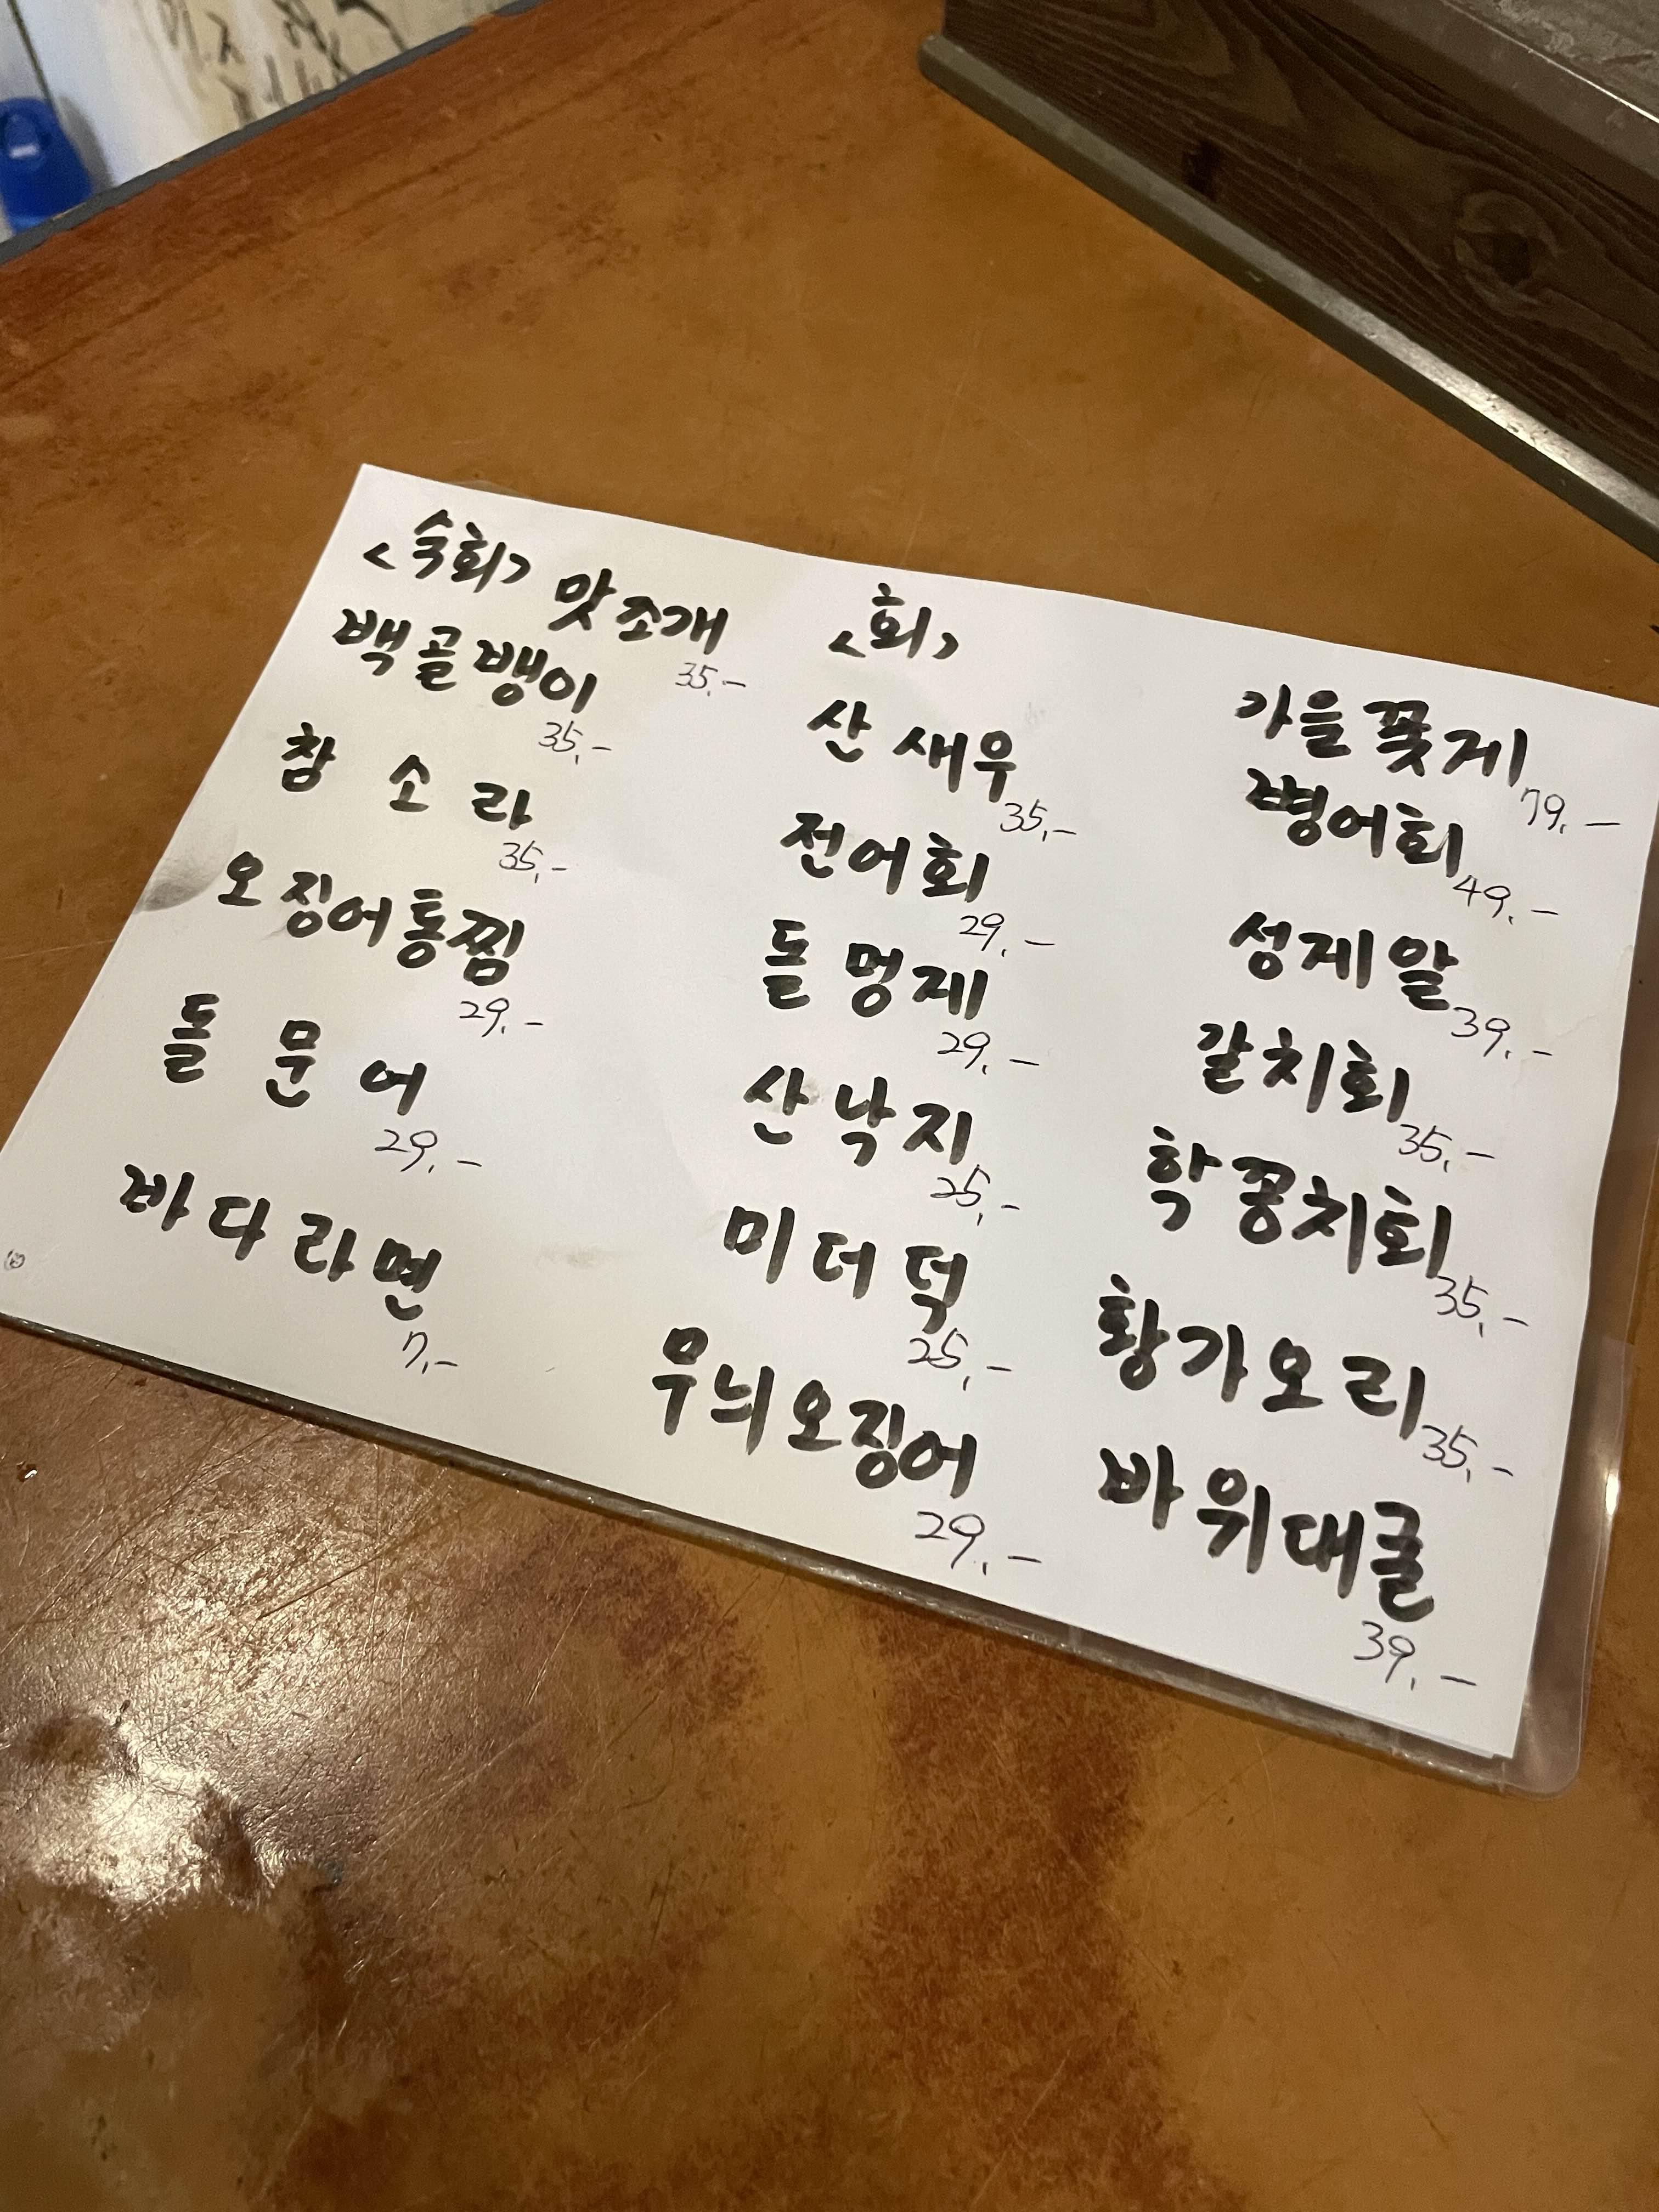 <숙회> 맛조개
35,-
백골뱅이
35,-
참 소 라
35,-
오징어통찜
29,-
돌 문 어
29,-
바다라면
7,-
<회>
산 새우
35,-
전어회
29,-
돌 멍게
29,-
산낙지
25,-
미더덕
25,-
무늬오징어
29,-
가을꽃게
79,-
병어회
49,-
성게알
39,-
갈치회
35,-
학꽁치회
35,-
황가오리
35,-
바위대굴
39,-